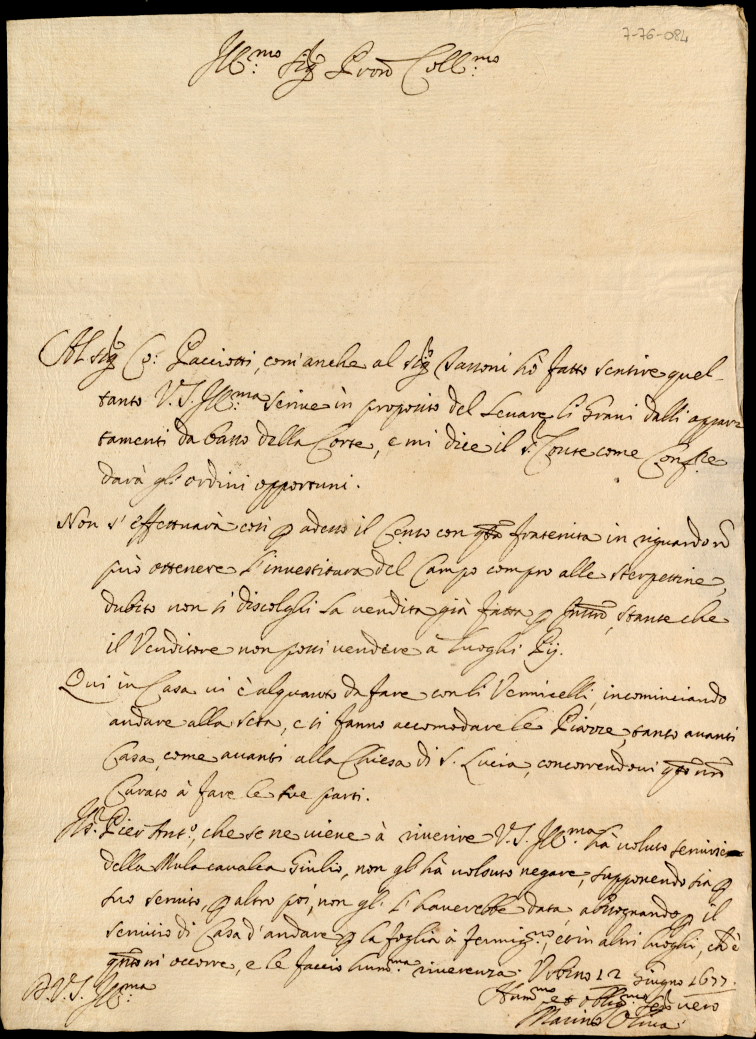 7-76-084
Ill:mo Sig.r Pron Coll:mo
Al Sig.r Co: Pacciotti, com'anche al Sig.r Santoni hò fatto sentire quel-
tanto V.S. Ill:ma scrive in proposito del levare li Grani dalli appar
tamenti da basso della Corte, e mi dice il S.r Conte come
darà gl'ordini opportuni.
Non s'effettuarà così p adesso il Censo con qsta fratenita in riguardo
può ottenere l'investitura del Campo compro alle sterpettine,
dubito non si disciolghi la vendita già fatta p stante che
il Venditore non possi vendere à luoghi Pij.
Qui in Casa vi è alquanto da fare con li Vermicelli, incominciando
andare alla seta, e si fanno accomodare le Piazze, tanto avanti
Casa, come avanti alla Chiesa di S. Lucia, concorrendovi qsto nro
Curato à fare le sue parti.
Pier Ant.o, che se ne viene à riverire V.S. Ill:ma hà voluto servirse
della Mula cavalca Giulio, non gl'hà voluto negare, supponendo sia p
suo servito, p altro poi, non gl' l'haverebbe data, abisognando p il
servitio di Casa d'andare p la foglia à Fermig:no, et in altri luoghi, ch'è
qnto mi occorre, e le faccio hum:ma riverenza. Urbino 12 Giugno 1677.
D.V.S. Ill:ma
Hum:mo et oblig:mo ser vero
Marino Oliva